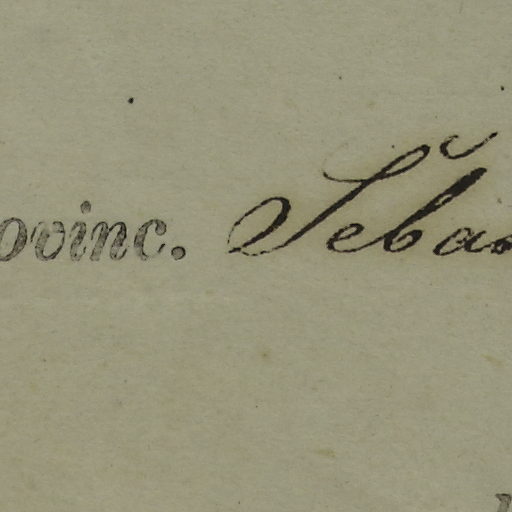 ovinc. Seba